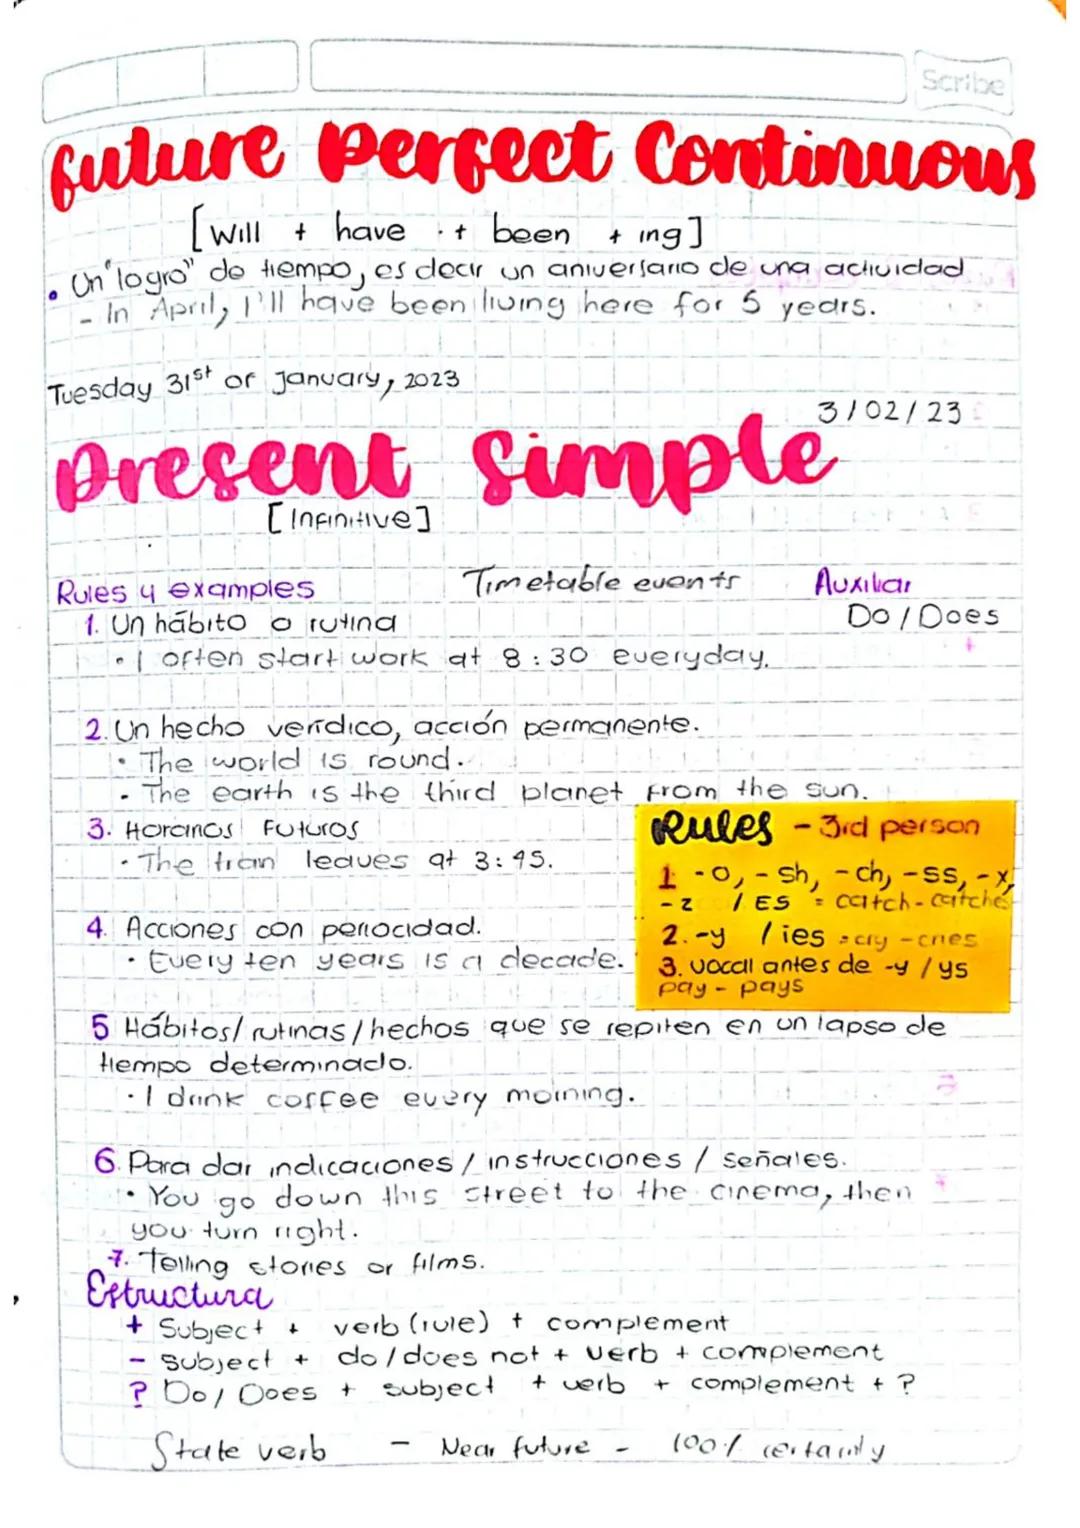 Scribe
future perfect Continuous
[Will + have + been + ing]
• Un "logro" de tiempo, es decir un aniversario de una actividad
- In April, I'll have been living here for 5 years.
Tuesday 31st of January, 2023
3/02/23
Present Simple
[Infinitive]
Rules y examples
Timetable events
Auxiliar
1. Un hábito o rutina
Do / Does
• I often start work at 8:30 everyday.
2. Un hecho verídico, acción permanente.
• The world is round.
• The earth is the third planet from the sun.
3. Horarios Futuros
• The train leaves at 3:45.
Rules - 3rd person
1 -o, -sh, -ch, -ss, -x,
-z / ES = catch - catches
2. -y / ies = cry - cries
3. vocal antes de -y / ys
pay - pays
4. Acciones con periocidad.
• Every ten years is a decade.
5 Hábitos/ rutinas / hechos que se repiten en un lapso de
tiempo determinado.
• I drink coffee every morning.
6. Para dar indicaciones / instrucciones / señales.
• You go down this street to the cinema, then
you turn right.
7. Telling stories or films.
Estructura
+ Subject + verb (rule) + complement
- subject + do / does not + verb + complement
? Do / Does + subject + verb + complement + ?
State verb - Near future - 100% certainly